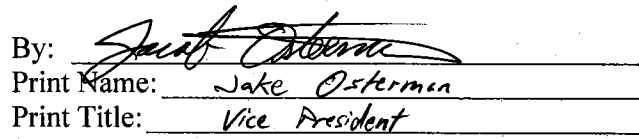 By: Jacob Osterman
Print Name: Jake Osterman
Print Title: Vice President